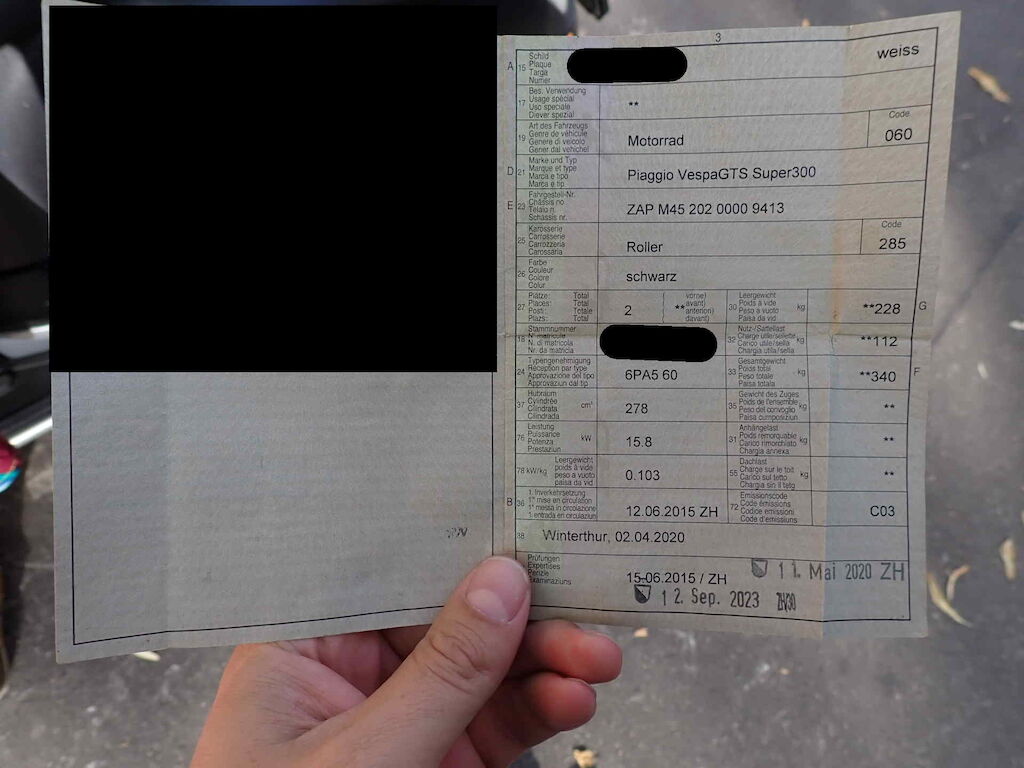 3
A 15 Schild
Plaque
Targa
Numer
weiss
17 Bes. Verwendung
Usage spécial
Uso speciale
Diever spezial
**
19 Art des Fahrzeugs
Genre de véhicule
Genere di veicolo
Gener dal vehichel
Motorrad
Code
060
D 21 Marke und Typ
Marque et type
Marca e tipo
Marca e tip
Piaggio VespaGTS Super300
E 23 Fahrgestell-Nr.
Châssis no
Telaio n.
Schassis nr.
ZAP M45 202 0000 9413
25 Karosserie
Carrosserie
Carrozzeria
Carossaria
Roller
Code
285
26 Farbe
Couleur
Colore
Colur
schwarz
27 Plätze: Total
Places: Total
Posti: Totale
Plazs: Total
2
** vorne)
avant)
anteriori)
davant)
30 Leergewicht
Poids à vide
Peso a vuoto
Paisa da vid
kg
**228
G
18 Stammnummer
N° matricule
N. di matricola
Nr. da matricla
32 Nutz-/Sattellast
Charge utile/sellette
Carico utile/sella
Chargia utila/sella
kg
**112
24 Typengenehmigung
Réception par type
Approvazione del tipo
Approvaziun dal tip
6PA5 60
33 Gesamtgewicht
Poids total
Peso totale
Paisa totala
kg
**340
F
37 Hubraum
Cylindrée
Cilindrata
Cilindrada
cm³
278
35 Gewicht des Zuges
Poids de l'ensemble
Peso del convoglio
Paisa cumposiziun
kg
**
76 Leistung
Puissance
Potenza
Prestaziun
kW
15.8
31 Anhängelast
Poids remorquable
Carico rimorchiato
Chargia annexa
kg
**
78 kW/kg Leergewicht
poids à vide
peso a vuoto
paisa da vid
0.103
55 Dachlast
Charge sur le toit
Carico sul tetto
Chargia sin il tetg
kg
**
B 36 1. Inverkehrsetzung
1re mise en circulation
1a messa in circolazione
1. entrada en circulaziun
12.06.2015 ZH
72 Emissionscode
Code émissions
Codice emissioni
Code d'emissiuns
C03
38 Winterthur, 02.04.2020
Prüfungen
Expertises
Perizie
Examinaziuns
15.06.2015 / ZH
11. Mai 2020 ZH
12. Sep. 2023